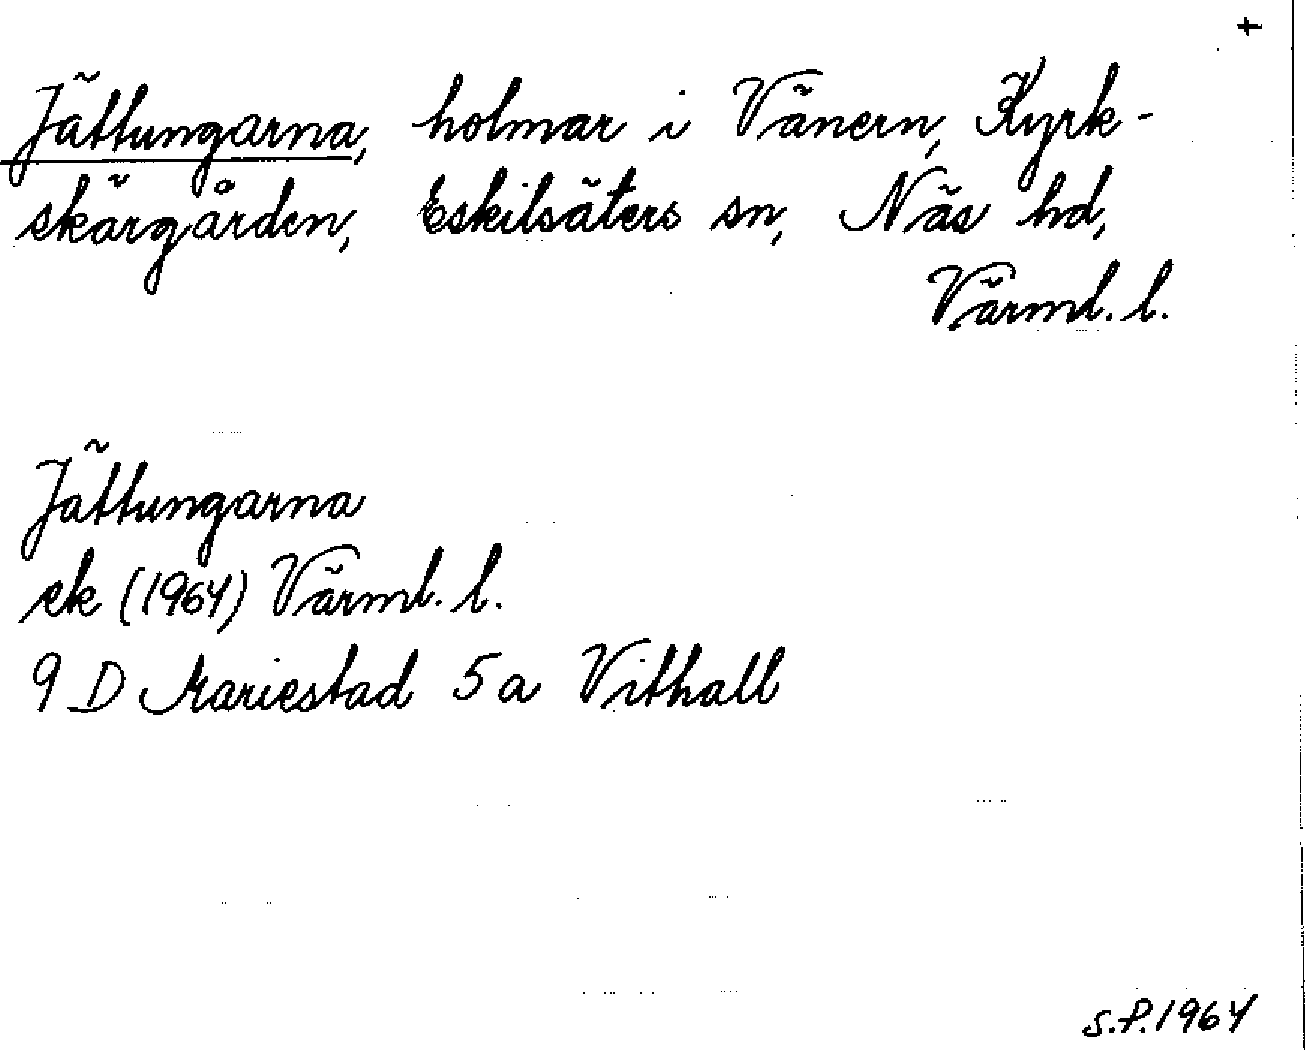 +
Jättungarna, holmar i Vänern, Kyrk-
skärgården, Eskilsäters sn, Näs hd,
Värml. l.
Jättungarna
ek (1964) Värml. l.
9 D Mariestad 5 a Vithall
S.P. 1964